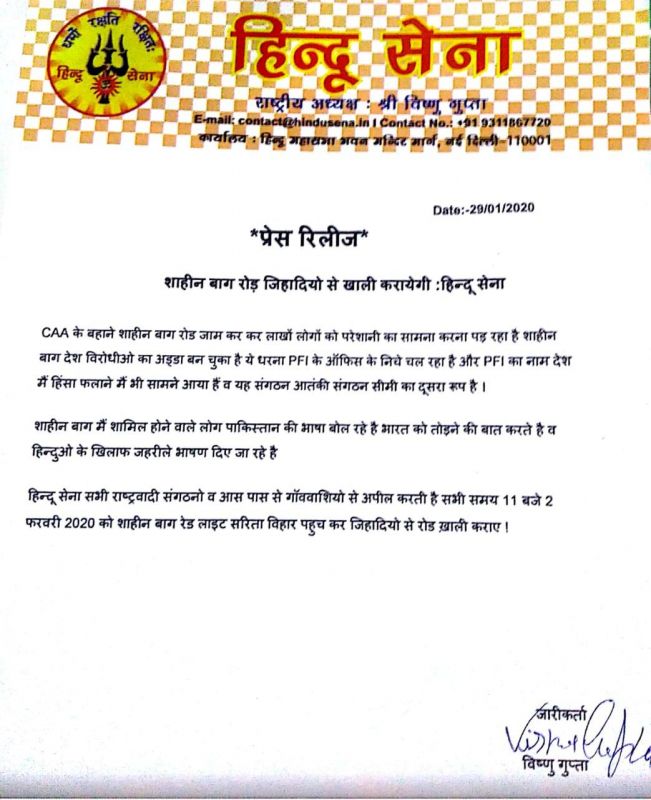 धर्मो रक्षति रक्षितः
हिन्दू सेना
हिन्दू सेना
राष्ट्रीय अध्यक्ष : श्री विष्णु गुप्ता
E-mail: contact@hindusena.in I Contact No.: +91 9311867720
कार्यालय : हिन्दू महासभा भवन मन्दिर मार्ग, नई दिल्ली-110001
Date:-29/01/2020
*प्रेस रिलीज*
शाहीन बाग रोड़ जिहादियो से खाली करायेगी :हिन्दू सेना
CAA के बहाने शाहीन बाग रोड जाम कर कर लाखों लोगों को परेशानी का सामना करना पड़ रहा है शाहीन
बाग देश विरोधीओ का अड्डा बन चुका है ये धरना PFI के ऑफिस के निचे चल रहा है और PFI का नाम देश
मैं हिंसा फलाने मैं भी सामने आया हैं व यह संगठन आतंकी संगठन सीमी का दूसरा रूप है ।
शाहीन बाग मैं शामिल होने वाले लोग पाकिस्तान की भाषा बोल रहे है भारत को तोड़ने की बात करते है व
हिन्दुओ के खिलाफ जहरीले भाषण दिए जा रहे है
हिन्दू सेना सभी राष्ट्रवादी संगठनो व आस पास से गाँववाशियो से अपील करती है सभी समय 11 बजे 2
फरवरी 2020 को शाहीन बाग रेड लाइट सरिता विहार पहुच कर जिहादियो से रोड ख़ाली कराए !
जारीकर्ता
Vishnu Gupta
विष्णु गुप्ता